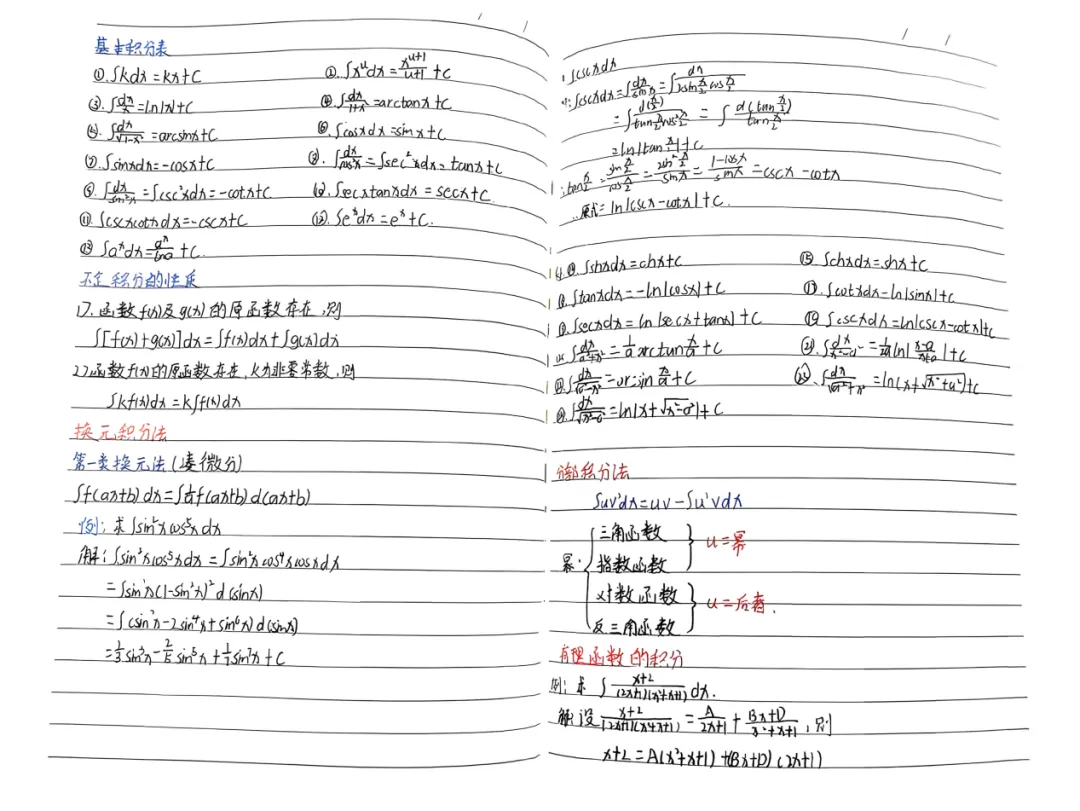 基本积分表
①. ∫kdx=kx+C ②. ∫x^u dx=x^(u+1)/(u+1)+C
③. ∫dx/x=ln|x|+C ④. ∫dx/(1+x²)=arctanx+C
⑤. ∫dx/√(1-x²)=arcsinx+C ⑥. ∫cosxdx=sinx+C
⑦. ∫sinxdx=-cosx+C ⑧. ∫dx/cos²x=∫sec²xdx=tanx+C
⑨. ∫dx/sin²x=∫csc²xdx=-cotx+C ⑩. ∫secxtanxdx=secx+C
⑪. ∫cscxcotxdx=-cscx+C ⑫. ∫e^x dx=e^x+C.
⑬ ∫a^x dx=a^x/lna+C
不定积分的性质
1>. 函数f(x)及g(x)的原函数存在,则
∫[f(x)+g(x)]dx=∫f(x)dx+∫g(x)dx
2>函数f(x)的原函数存在,k为非零常数,则
∫kf(x)dx=k∫f(x)dx
换元积分法
第一类换元法(凑微分)
∫f(ax+b)dx=∫1/a f(ax+b)d(ax+b)
例:求∫sin²xcos⁵xdx
解:∫sin²xcos⁵xdx=∫sin²xcos⁴xcosxdx
=∫sin²x(1-sin²x)²d(sinx)
=∫(sin²x-2sin⁴x+sin⁶x)d(sinx)
=1/3sin³x-2/5sin⁵x+1/7sin⁷x+C
∫cscxdx
∫cscxdx=∫dx/sinx=∫dx/(2sin x/2 cos x/2)
=∫d(x/2)/(tan x/2 cos² x/2)=∫d(tan x/2)/(tan x/2)
=ln|tan x/2|+C
tan x/2=(sin x/2)/(cos x/2)=(2sin² x/2)/sinx=(1-cosx)/sinx=cscx-cotx
原式=ln|cscx-cotx|+C.
⑭. ∫shxdx=chx+C ⑮. ∫chxdx=shx+C
∫tanxdx=-ln|cosx|+C ⑰. ∫cotxdx=ln|sinx|+C
∫secxdx=ln|secx+tanx|+C ⑲ ∫cscxdx=ln|cscx-cotx|+C
∫dx/(a²+x²)=1/a arctan x/a+C ㉑. ∫dx/(x²-a²)=1/2a ln|(x-a)/(x+a)|+C
∫dx/√(a²-x²)=arcsin x/a+C ∫dx/√(a²+x²)=ln(x+√(x²+a²))+C
∫dx/√(x²-a²)=ln|x+√(x²-a²)|+C
分部积分法
∫uv'dx=uv-∫u'vdx
幂·{三角函数
指数函数} u=幂
对数函数
反三角函数} u=后者.
有理函数的积分
例:求∫(x+2)/((2x+1)(x²+x+1))dx.
解 设(x+2)/((2x+1)(x²+x+1))=A/(2x+1)+(Bx+D)/(x²+x+1),则
x+2=A(x²+x+1)+(Bx+D)(2x+1)